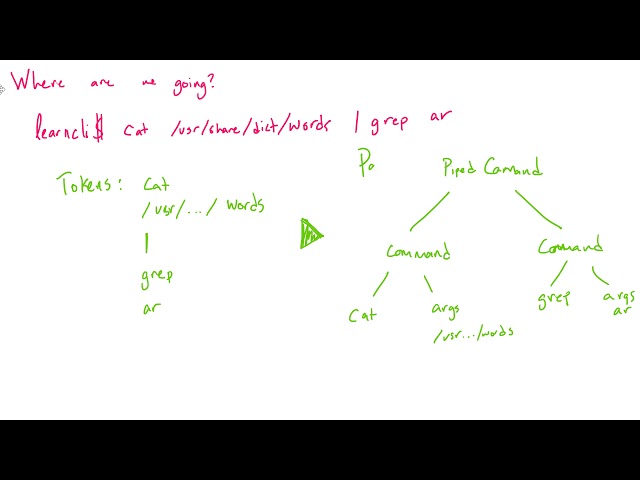 Where are we going?
learncli$ cat /usr/share/dict/words | grep ar
Tokens: cat
/usr/.../ words
|
grep
ar
Pa
Piped Command
Command
Command
cat
args
/usr.../words
grep
args
ar